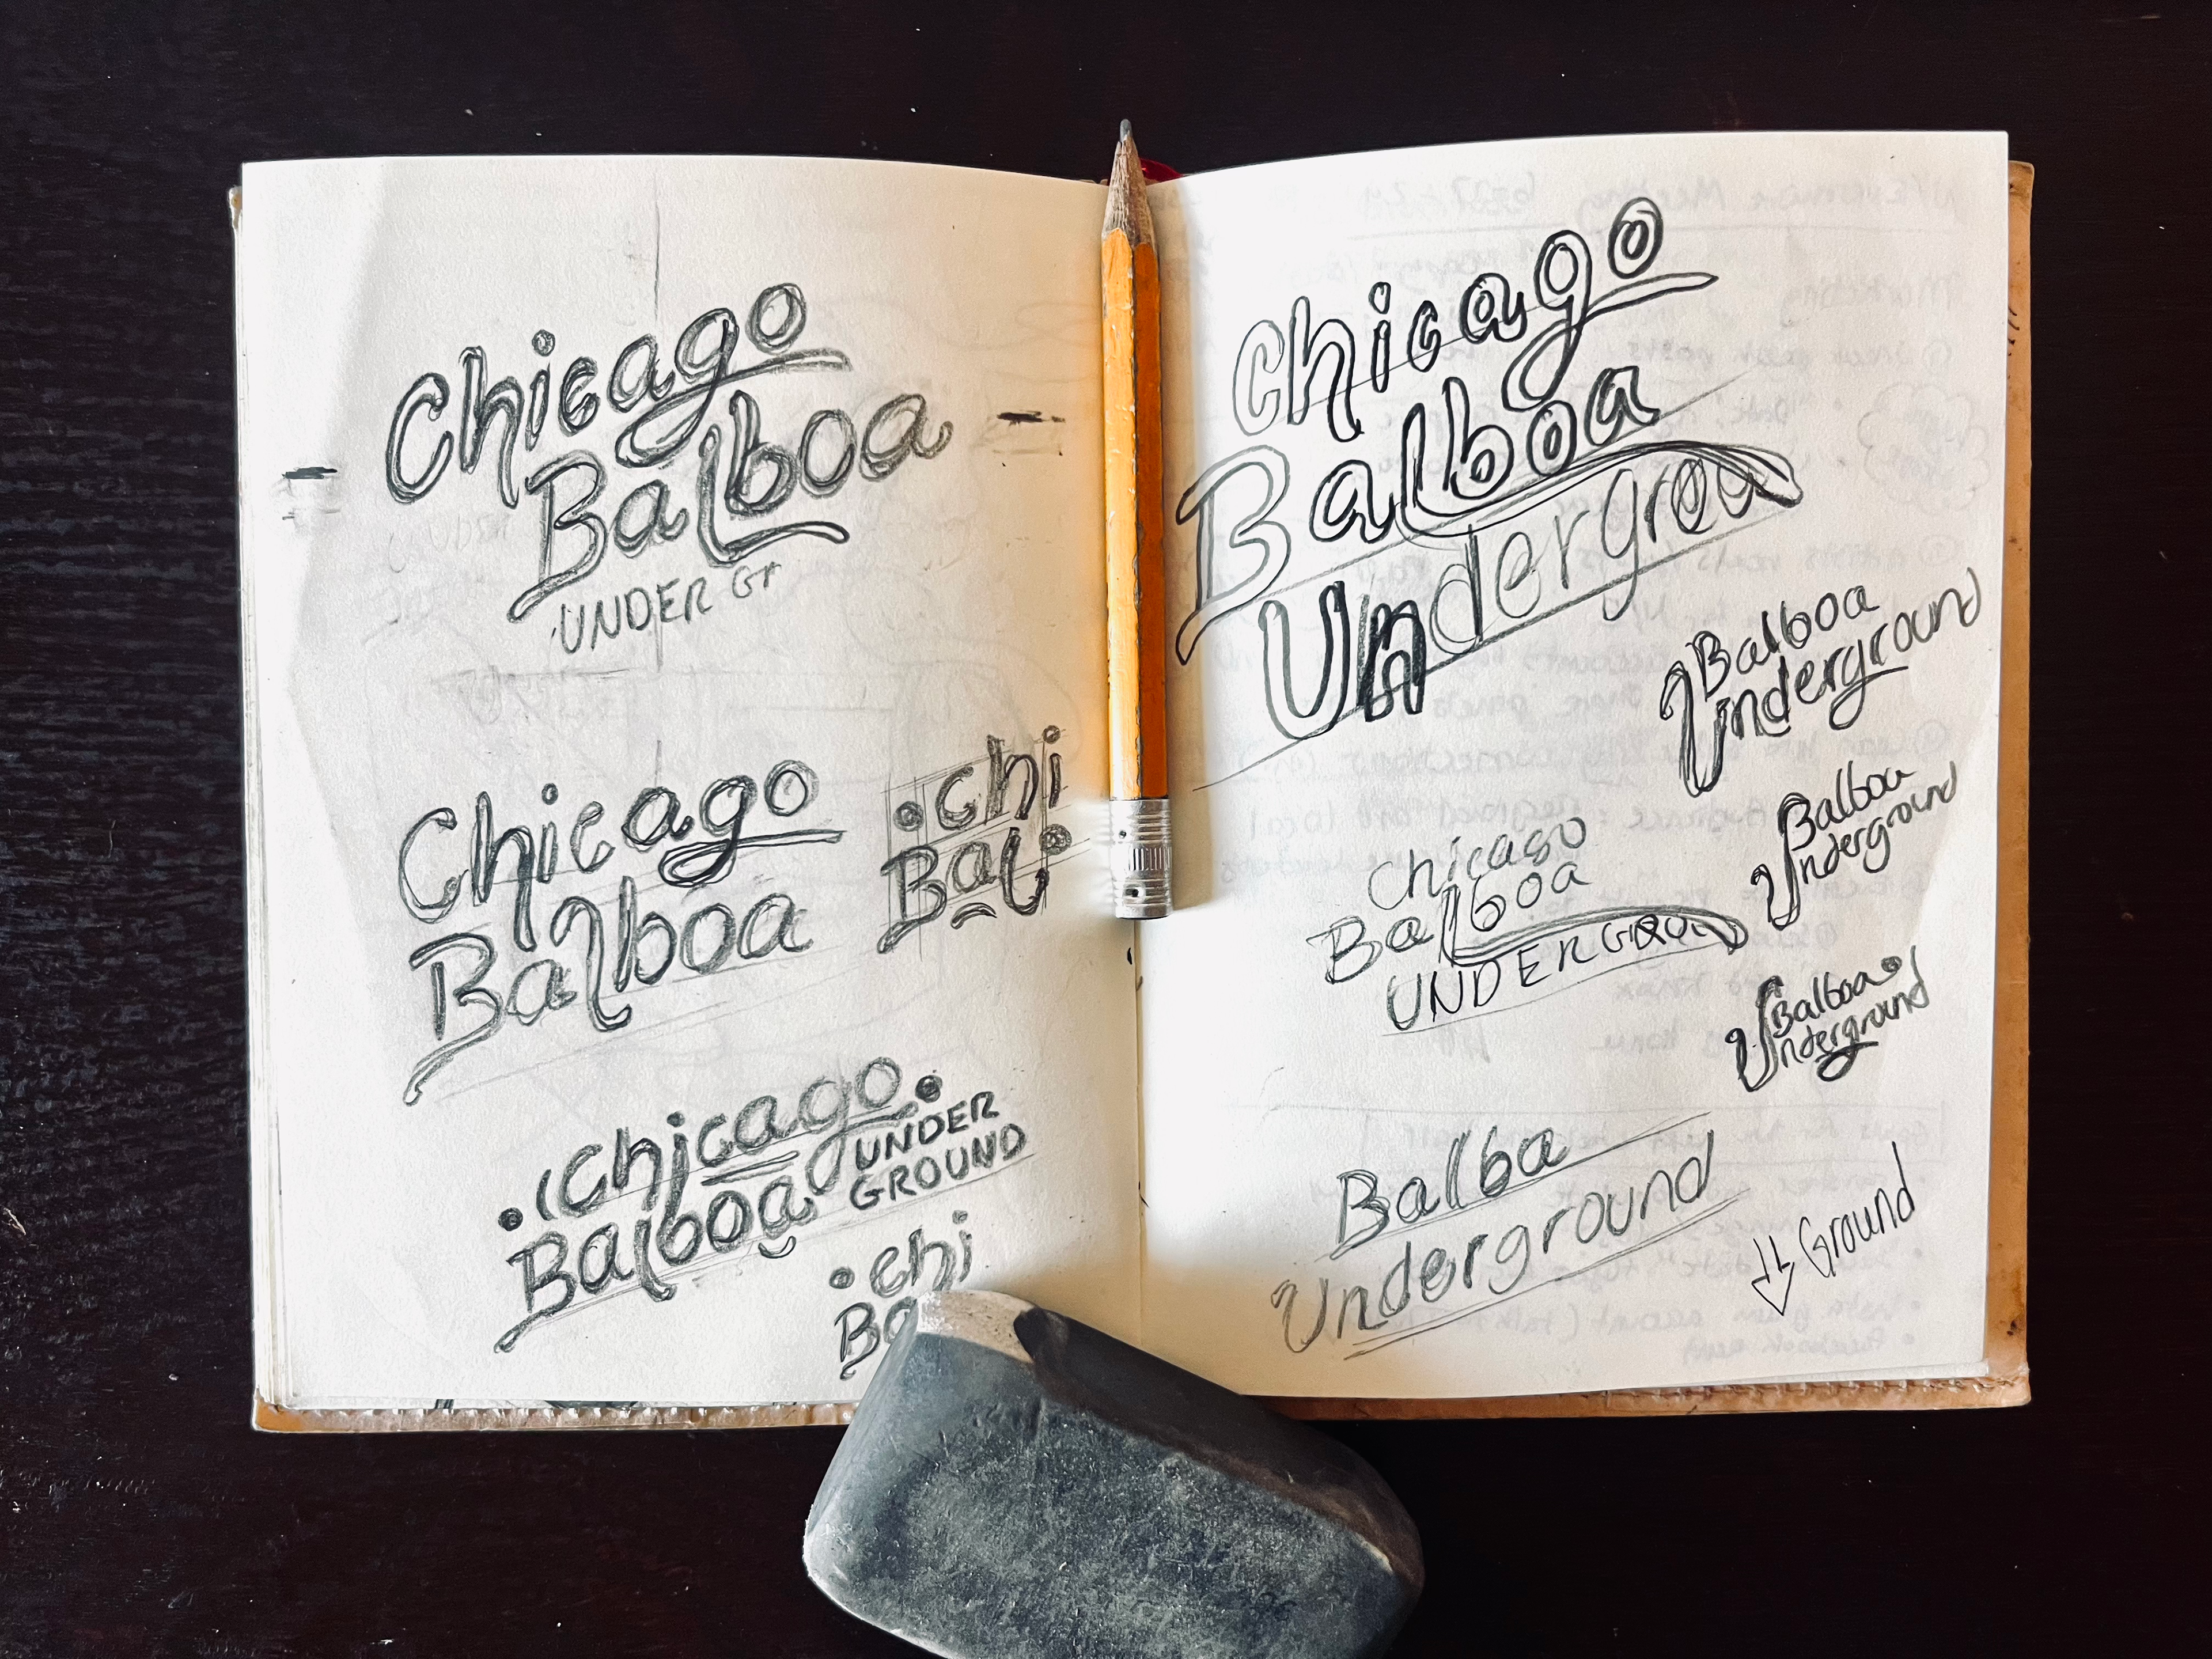 Chicago
Balboa
UNDER Gr
Chicago
Balboa
chi
Bal
Chicago
Balboa
UNDER
GROUND
chi
Ba
Chicago
Balboa
Undergrou
Balboa
Underground
Balboa
Underground
Chicago
Balboa
UNDERGROUN
Balboa
Underground
Balba
Underground
Ground